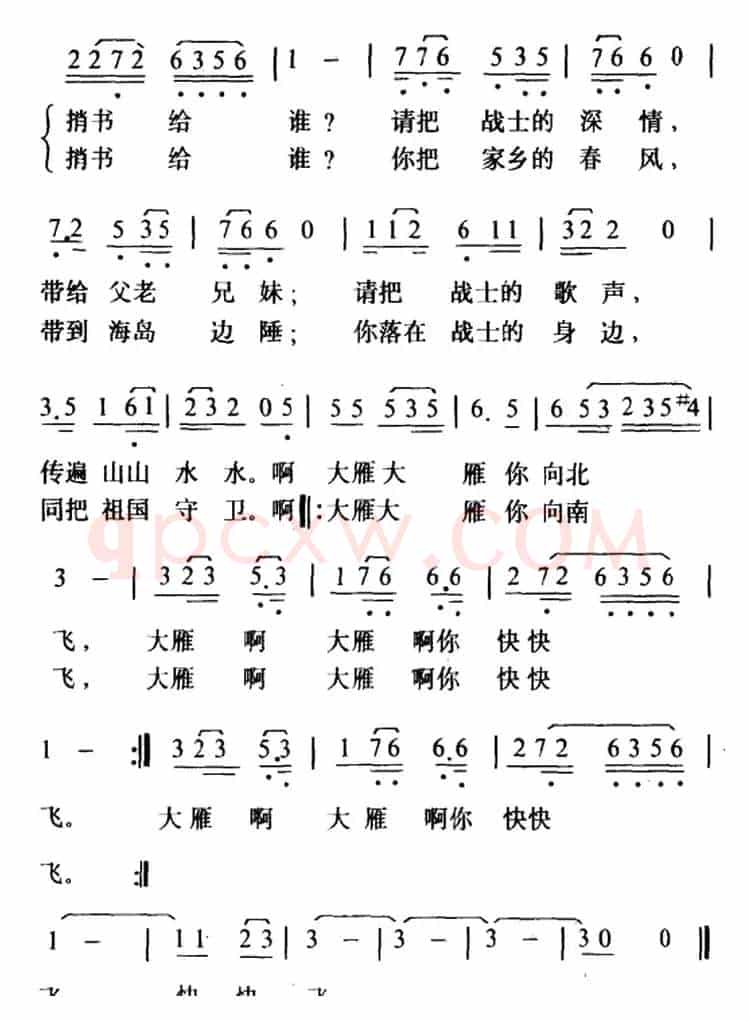 2 2 7 2 6 3 5 6 | 1 - | 7 7 6 5 3 5 | 7 6 6 0 |
捎书 给 谁？ 请把 战士的 深 情，
捎书 给 谁？ 你把 家乡的 春 风，
7. 2 5 3 5 | 7 6 6 0 | 1 1 2 6 1 1 | 3 2 2 0 |
带给 父老 兄 妹； 请把 战士的 歌 声，
带到 海岛 边 陲； 你落在 战士的 身 边，
3. 5 1 6 1 | 2 3 2 0 5 | 5 5 5 3 5 | 6. 5 | 6 5 3 2 3 5 #4 |
传遍 山山 水 水。啊 大雁大 雁 你 向北
同把 祖国 守 卫。啊‖: 大雁大 雁 你 向南
qpcxw.COM
3 - | 3 2 3 5. 3 | 1 7 6 6. 6 | 2 7 2 6 3 5 6 |
飞， 大雁 啊 大雁 啊你 快快
飞， 大雁 啊 大雁 啊你 快快
1 - :‖ 3 2 3 5. 3 | 1 7 6 6. 6 | 2 7 2 6 3 5 6 |
飞。 大雁 啊 大雁 啊你 快快
飞。 :‖
1 - | 1 1 2 3 | 3 - | 3 - | 3 - | 3 0 0 ‖
飞 快 快 飞